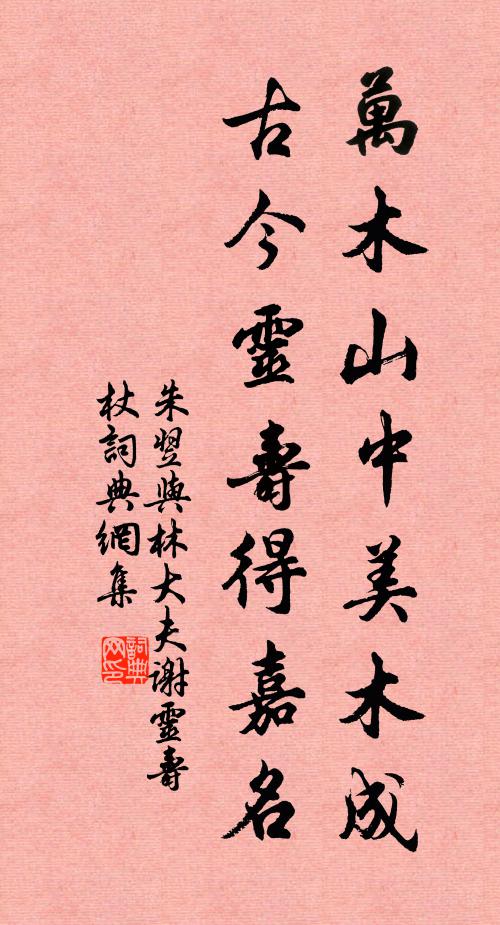 萬木山中美木成
古今靈壽得嘉名
朱翌與林大夫謝靈壽
杖詞典網集
詞典
网印